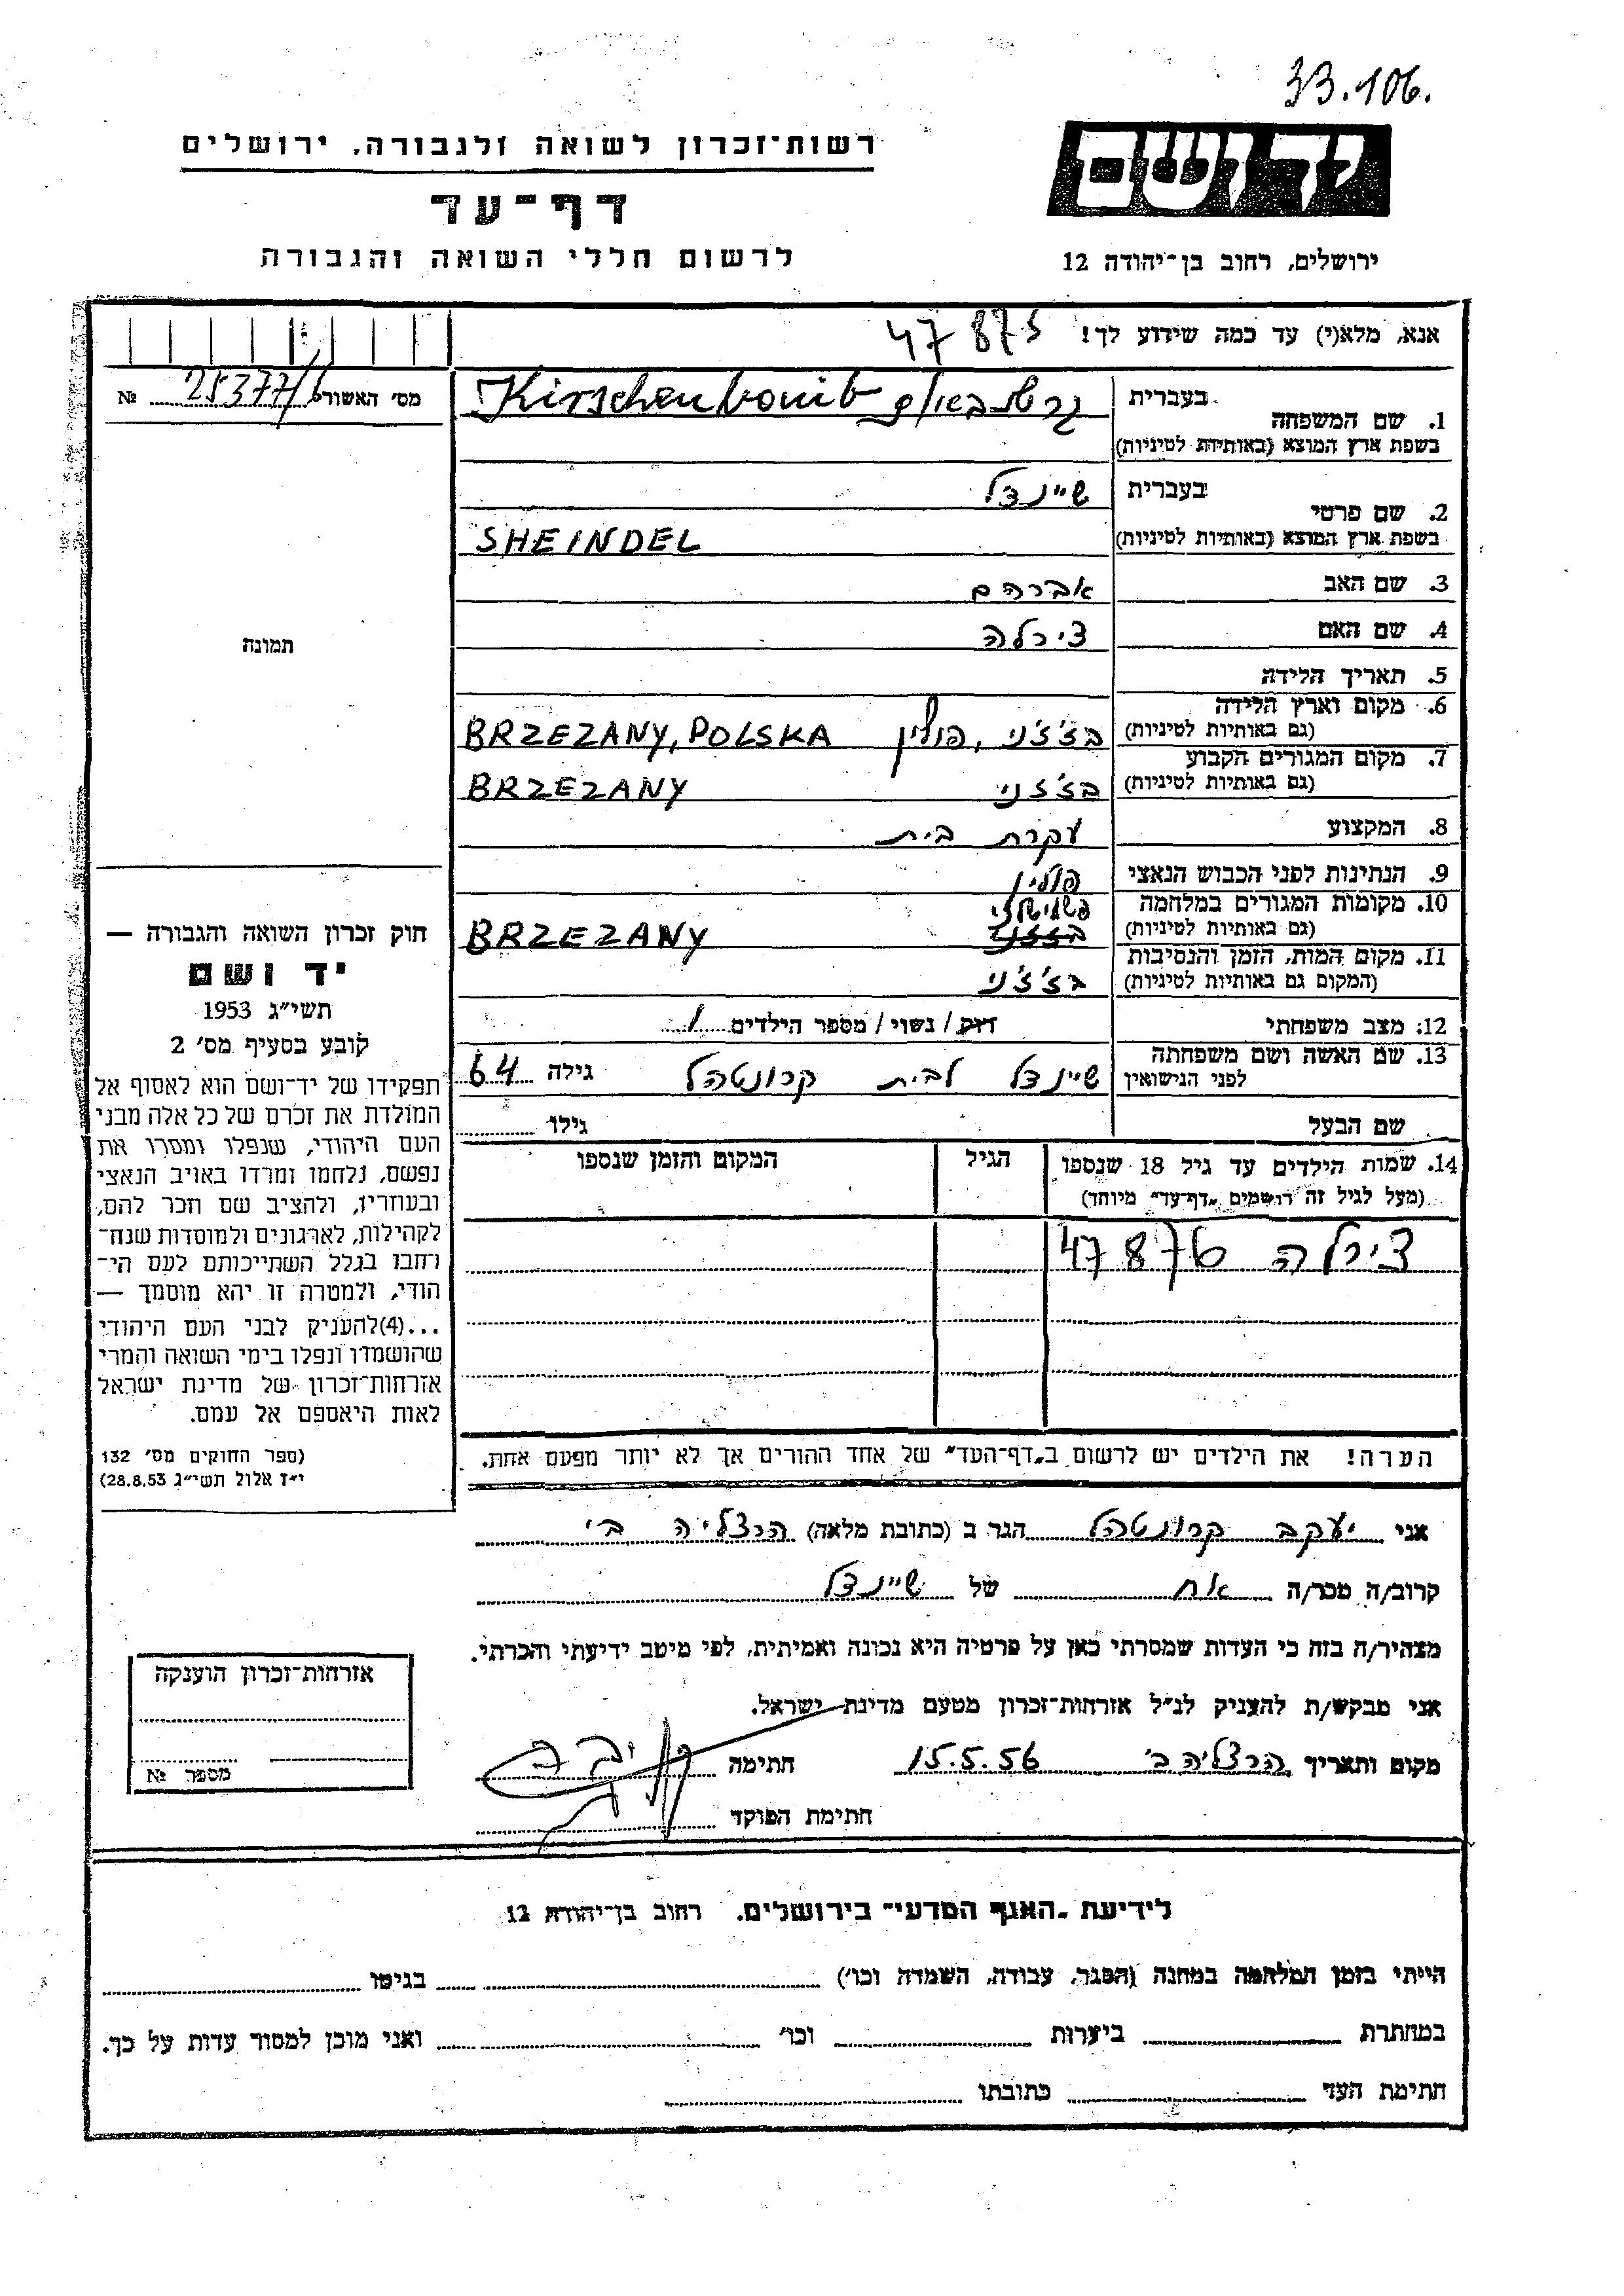 33.106.
יד ושם
רשות־זכרון לשואה ולגבורה, ירושלים
דף־עד
ירושלים, רחוב בן־יהודה 12
לרשום חללי השואה והגבורה
אנא, מלא(י) עד כמה שידוע לך! 47875
מס׳ האשור 25377/6 №
1. שם המשפחה בעברית Kirschenbomb
בשפת ארץ המוצא (באותיות לטיניות)
2. שם פרטי בעברית שיינדל
בשפת ארץ המוצא (באותיות לטיניות) SHEINDEL
3. שם האב אברהם
4. שם האם צירלה
5. תאריך הלידה
6. מקום וארץ הלידה
(גם באותיות לטיניות) בז׳ז׳ני, פולין BRZEZANY, POLSKA
7. מקום המגורים הקבוע
(גם באותיות לטיניות) בז׳ז׳ני BRZEZANY
8. המקצוע עקרת בית
9. הנתינות לפני הכבוש הנאצי פולין
10. מקומות המגורים במלחמה
(גם באותיות לטיניות) BRZEZANY
11. מקום המות, הזמן והנסיבות
(המקום גם באותיות לטיניות) בז׳ז׳ני
12. מצב משפחתי רוק / נשוי / מספר הילדים 1
13. שם האשה ושם משפחתה
לפני הנישואין שיינדל לבית קרונטהל גילה 64
שם הבעל גילו
14. שמות הילדים עד גיל 18 שנספו הגיל המקום והזמן שנספו
(מעל לגיל זה רושמים „דף־עד״ מיוחד)
צירלה 47876
הערה! את הילדים יש לרשום ב„דף־העד״ של אחד ההורים אך לא יותר מפעם אחת.
תמונה
חוק זכרון השואה והגבורה —
יד ושם
תשי״ג 1953
קובע בסעיף מס׳ 2
תפקידו של יד־ושם הוא לאסוף אל
המולדת את זכרם של כל אלה מבני
העם היהודי, שנפלו ומסרו את
נפשם, נלחמו ומרדו באויב הנאצי
ובעוזריו, ולהציב שם וזכר להם,
לקהילות, לארגונים ולמוסדות שנח־
רחבו בגלל השתייכותם לעם הי־
הודי, ולמטרה זו יהא מוסמך —
...(4)להעניק לבני העם היהודי
שהושמדו ונפלו בימי השואה והמרי
אזרחות־זכרון של מדינת ישראל
לאות היאספם אל עמם.
(ספר החוקים מס׳ 132
י״ז אלול תשי״ג 28.8.53)
אני יעקב קרונטהל הגר ב (כתובת מלאה) הרצליה ב׳
קרוב/ה מכר/ה אח של שיינדל
מצהיר/ה בזה כי העדות שמסרתי כאן על פרטיה היא נכונה ואמיתית, לפי מיטב ידיעתי והכרתי.
אני מבקש/ת להעניק לנ״ל אזרחות־זכרון מטעם מדינת ישראל.
מקום ותאריך הרצליה ב׳ 15.5.56 חתימה
חתימת הפוקד
אזרחות־זכרון הוענקה
מספר №
לידיעת „האגף המדעי״ בירושלים. רחוב בן־יהודה 12
הייתי בזמן המלחמה במחנה (הסגר, עבודה, השמדה וכו׳) בגיטו
במחתרת ביערות וכו׳ ואני מוכן למסור עדות על כך.
חתימת העד כתובתו